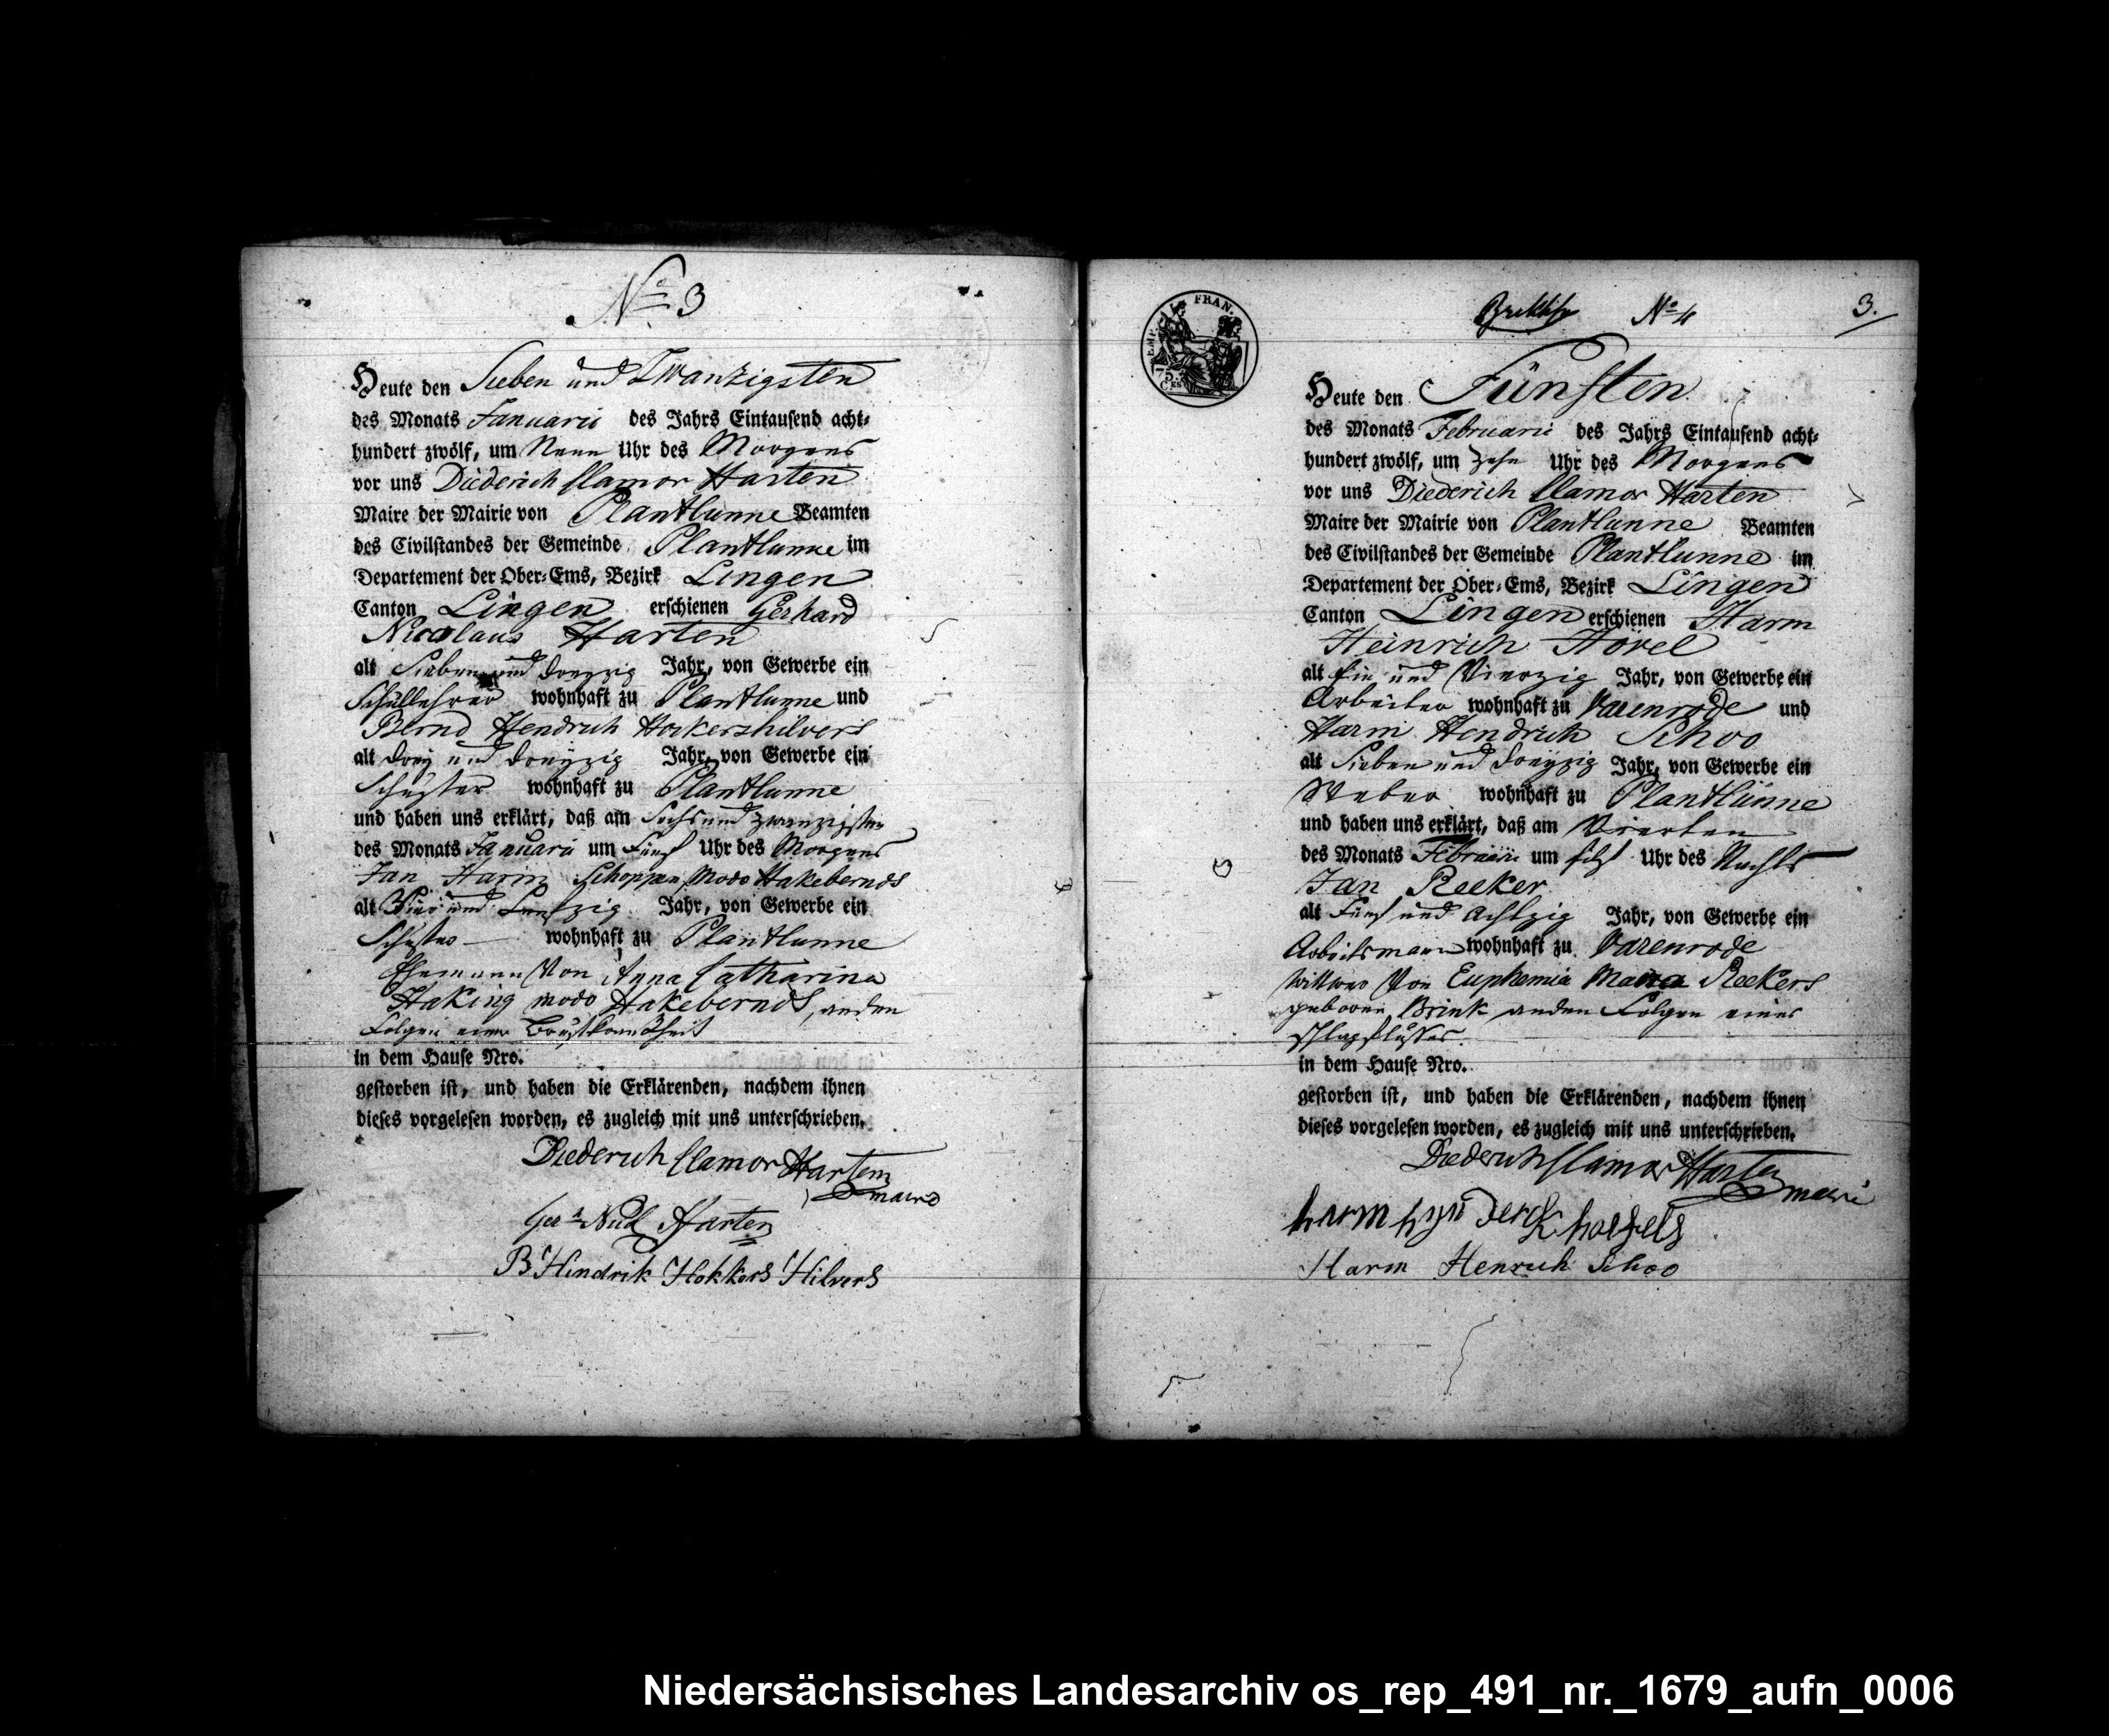 No 3
Heute den Sieben und Zwanzigsten
des Monats Januarii des Jahrs Eintausend acht-
hundert zwölf, um Neun Uhr des Morgens
vor uns Diederich Clamor Harten
Maire der Mairie von Plantlunne Beamten
des Civilstandes der Gemeinde Plantlunne im
Departement der Ober-Ems, Bezirk Lingen
Canton Lingen erschienen Gerhard
Nicolaus Harten
alt Sieben und dreyzig Jahr, von Gewerbe ein
Schullehrer wohnhaft zu Plantlunne und
Bernd Hendrich Hockershilvers
alt drey und dreyzig Jahr, von Gewerbe ein
Schuster wohnhaft zu Plantlunne
und haben uns erklärt, daß am Sechs und zwanzigsten
des Monats Januarii um Fünf Uhr des Morgens
Jan Harm Schoppen modo Hakebernds
alt Vier und Funfzig Jahr, von Gewerbe ein
Schuster wohnhaft zu Plantlunne
Ehemann Von Anna Catharina
Haking modo Hakebernds, an den
Folgen einer Brustkrankheit
in dem Hause Nro.
gestorben ist, und haben die Erklärenden, nachdem ihnen
dieses vorgelesen worden, es zugleich mit uns unterschrieben.
Diederich Clamor Harten
maire
Gerh Nicol Harten
B Hindrik Hokkers Hilvers
EMP. FRAN.
75. CES
No 4
3.
Heute den Fünften
des Monats Februarii des Jahrs Eintausend acht-
hundert zwölf, um Zehn Uhr des Morgens
vor uns Diederich Clamor Harten
Maire der Mairie von Plantlunne Beamten
des Civilstandes der Gemeinde Plantlunne im
Departement der Ober-Ems, Bezirk Lingen
Canton Lingen erschienen Harm
Heinrich Hövel
alt Ein und Vierzig Jahr, von Gewerbe ein
Arbeiter wohnhaft zu Varenrode und
Harm Hendrich Schoo
alt Sieben und dreyzig Jahr, von Gewerbe ein
Weber wohnhaft zu Plantlünne
und haben uns erklärt, daß am Vierten
des Monats Februarii um Uhr des Nachts
Jan Reeker
alt Fünf und Achtzig Jahr, von Gewerbe ein
Arbeitsmann wohnhaft zu Varenrode
Wittwer Von Euphemia Maria Reekers
geboren Brink an den Folgen eines
Schlagflusses.
in dem Hause Nro.
gestorben ist, und haben die Erklärenden, nachdem ihnen
dieses vorgelesen worden, es zugleich mit uns unterschrieben.
Diederich Clamor Harten
maire
harm hynderck hoefels
Harm Henrich Schoo
Niedersächsisches Landesarchiv os_rep_491_nr._1679_aufn_0006